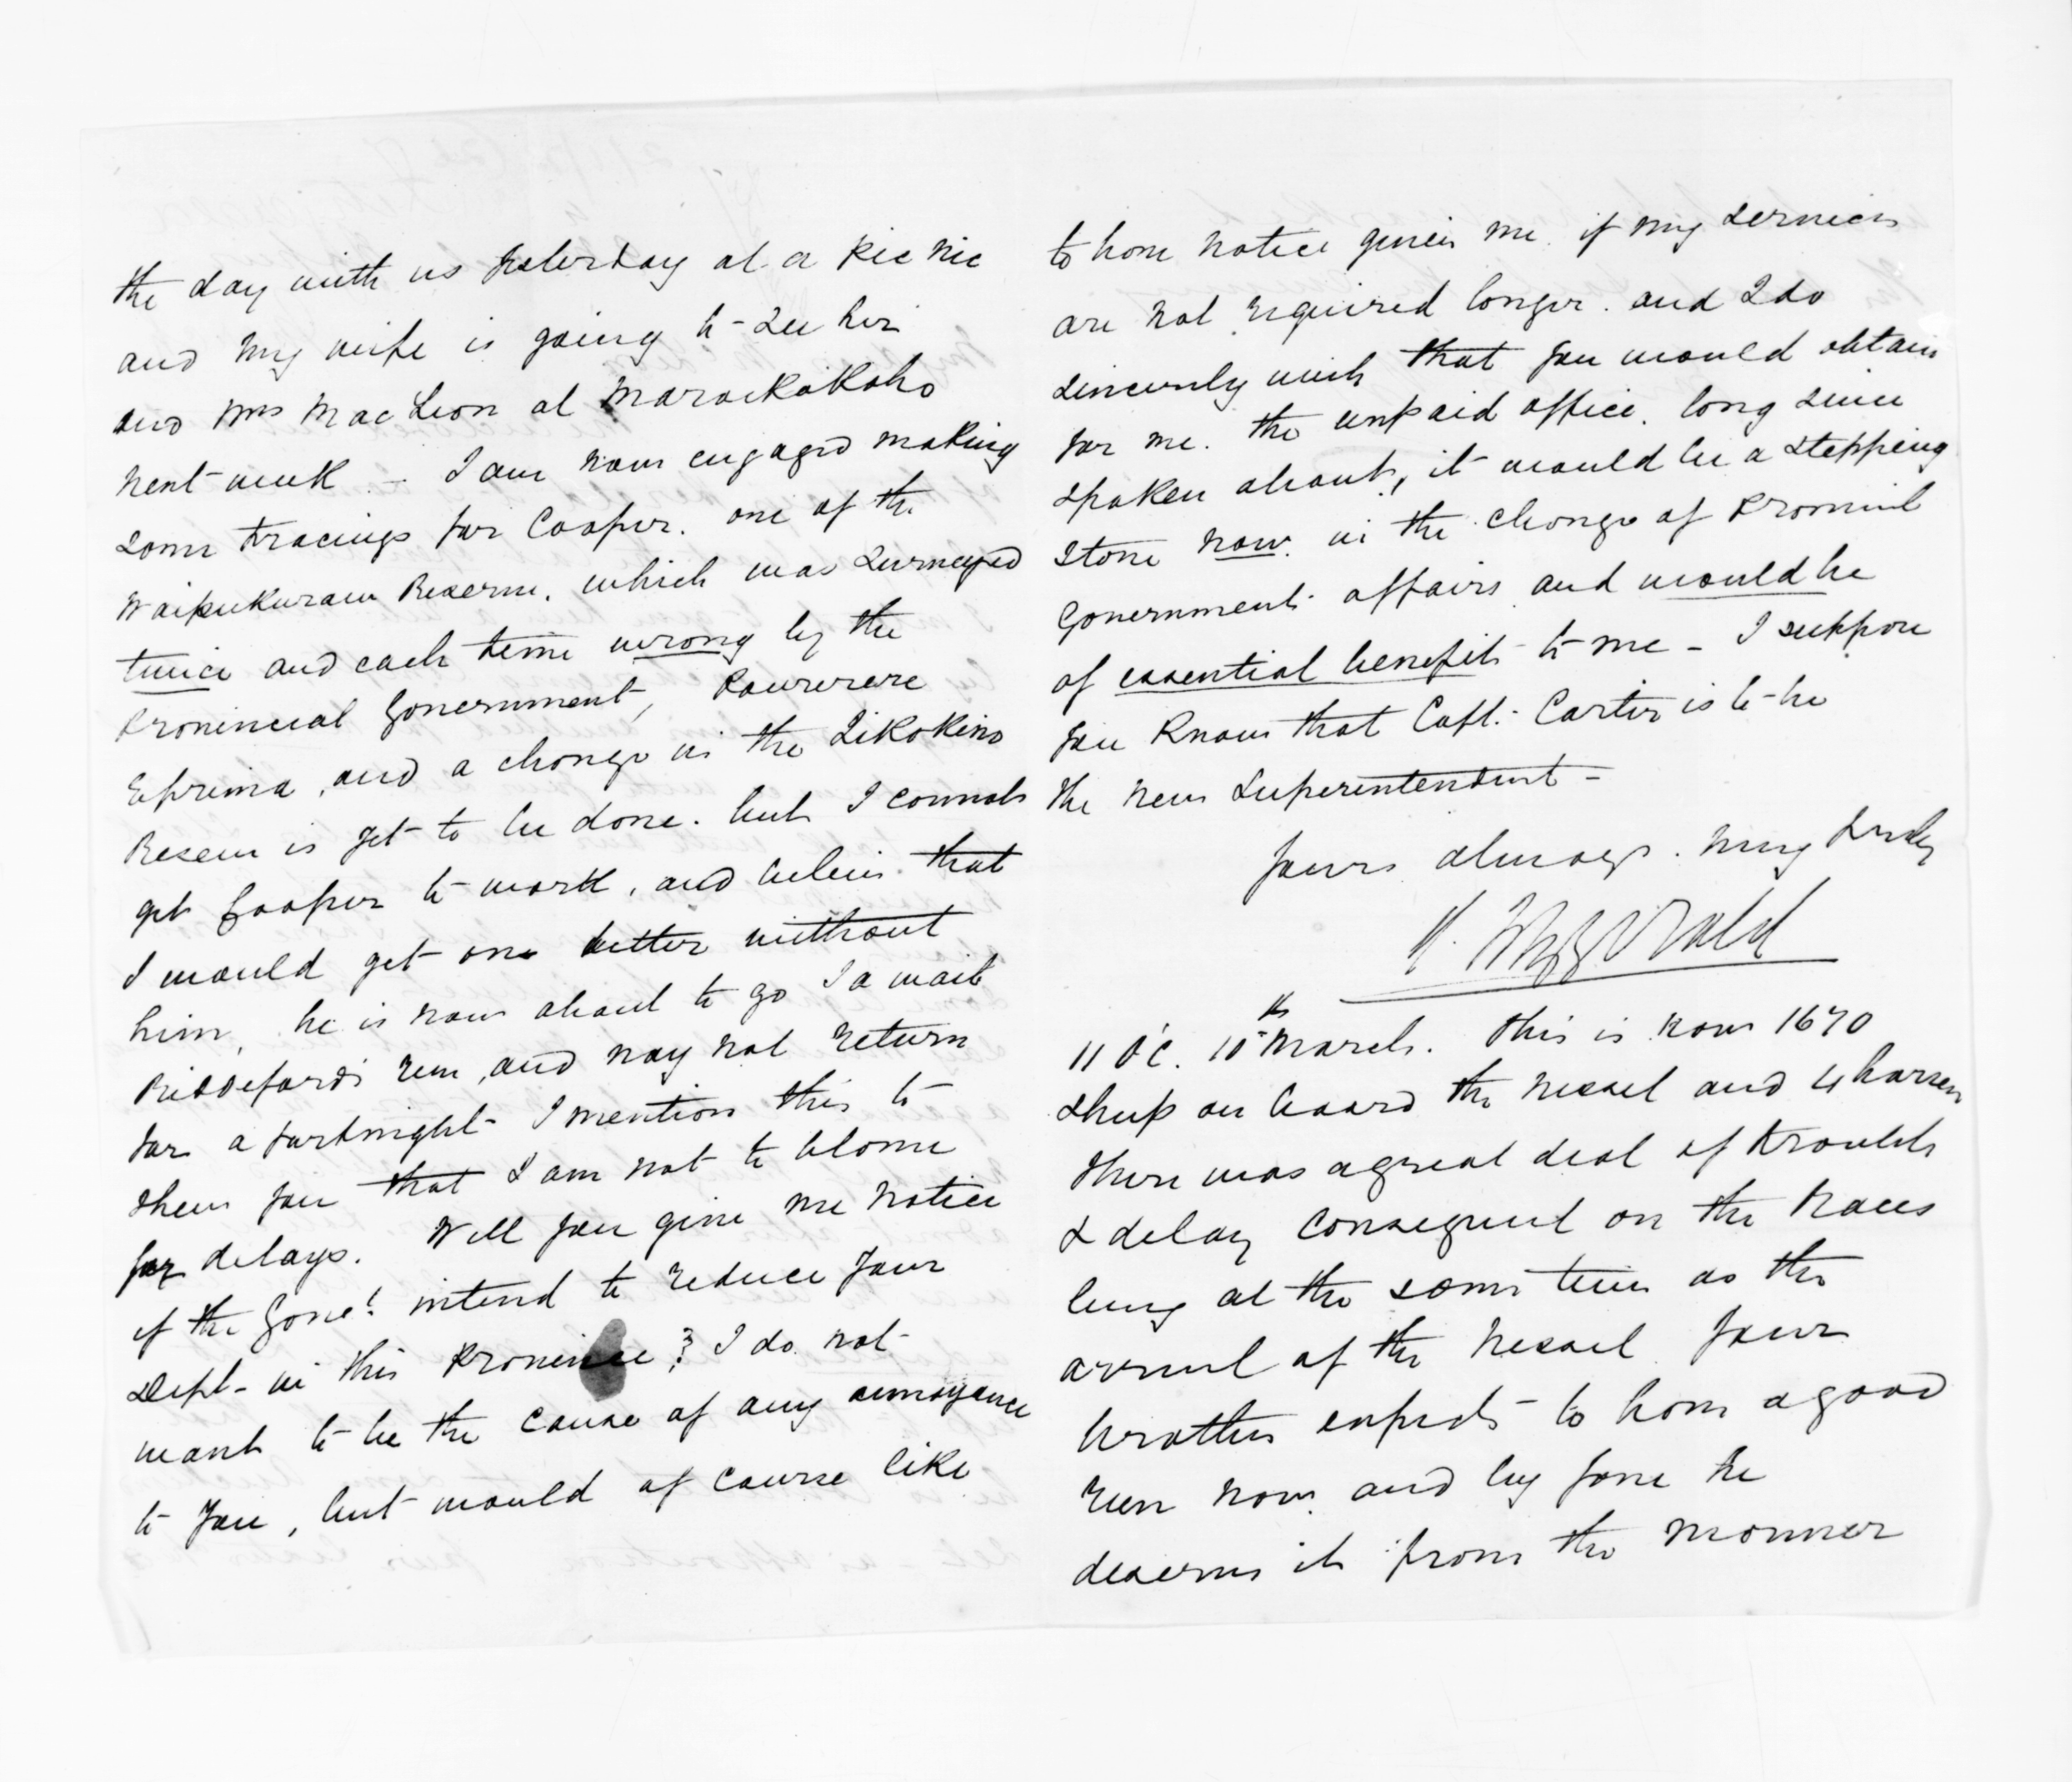 the day with us yesterday at a Pic Nic
and my wife is going to see her
and Mrs MacLeon at Maraekakaho
next week - I am now engaged making
some tracings for Cooper. one of the
Waipukurau Reserve, which was surveyed
twice and each time wrong by the
Provincial Government, Pourerere
Eparima, and a change in the Tikokino
Reserve is yet to be done. but I cannot
get Cooper to work, and believe that
I would get on better without
him, he is now about to go to wait
Riddifords run, and may not return
for a fortnight - I mention this to
shew you that I am not to blame
for delays. Will you give me notice
if the Govt. intend to reduce your
Dept - in this Province? I do not
want to be the cause of any annoyance
to you, but would of course like
to have notice given me if my services
are not required longer. and I do
sincerely wish that you would obtain
for me. the unpaid office. long since
spoken about, it would be a stepping
stone now. in the change of Provincl
Government affairs and would be
of essential benefit to me - I suppose
you know that Capt. Carter is to be
the new Superintendent -
Yours always. very truly
FitzGerald
11 OC. 10th March. This is now 1670
sheep on board the vessel and 4 horses
there was a great deal of trouble
& delay consequent on the Races
being at the same time as the
arrival of the vessel your
brother expects to have a good
run now. and by Jove he
deserves it from the manner